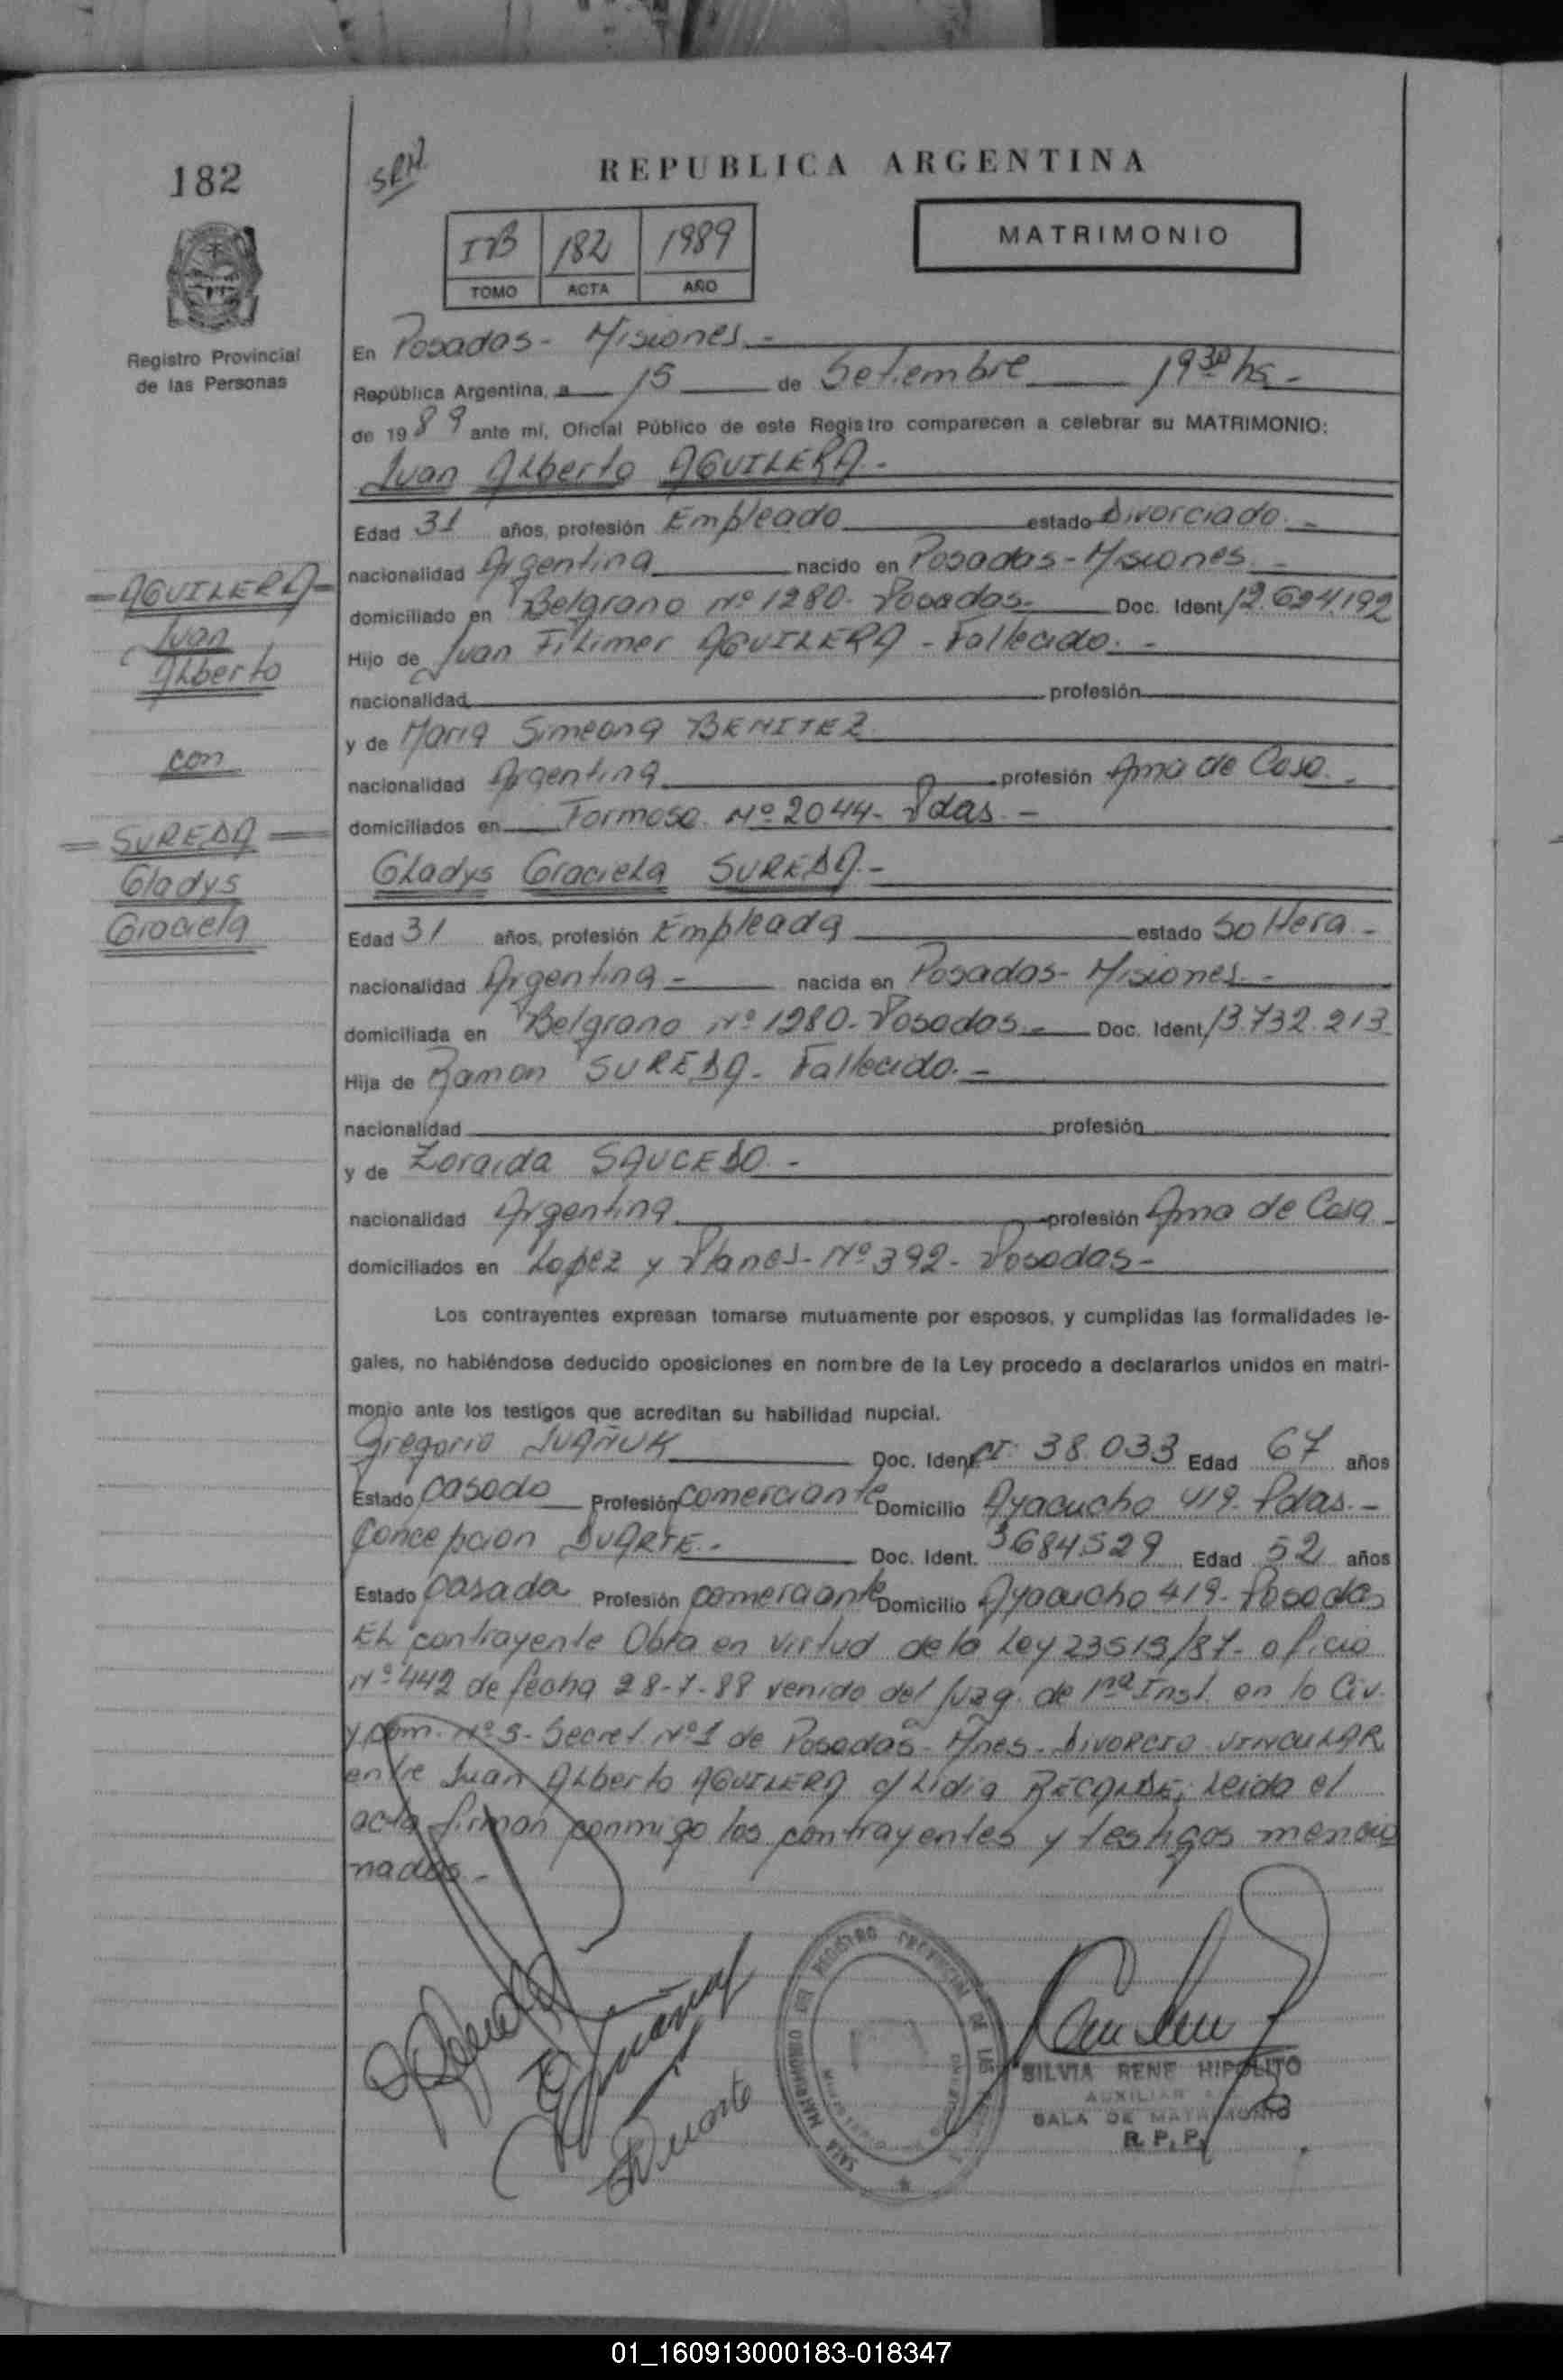 182
SRH
REPUBLICA ARGENTINA
IB 182 1989
TOMO ACTA AÑO
MATRIMONIO
Registro Provincial
de las Personas
En Posadas - Misiones -
República Argentina, a 15 de Setiembre 19 30 hs -
de 1989 ante mí, Oficial Público de este Registro comparecen a celebrar su MATRIMONIO:
Juan Alberto AGUILERA -
Edad 31 años, profesión Empleado estado Divorciado. -
nacionalidad Argentina nacido en Posadas - Misiones -
domiciliado en Belgrano Nº 1280 - Posadas - Doc. Ident 12.624.192
Hijo de Juan Filimer AGUILERA - Fallecido. -
nacionalidad profesión
y de Maria Simeona BENITEZ
nacionalidad Argentina profesión Ama de Casa. -
domiciliados en Formosa Nº 2044 - Pdas. -
Gladys Graciela SUREDA -
Edad 31 años, profesión Empleada estado Soltera -
nacionalidad Argentina - nacida en Posadas - Misiones -
domiciliada en Belgrano Nº 1280 - Posadas - Doc. Ident 13.732.213
Hija de Ramon SUREDA - Fallecido. -
nacionalidad profesión
y de Zoraida SAUCEDO -
nacionalidad Argentina profesión Ama de Casa
domiciliados en Lopez y Planes - Nº 392 - Posadas -
Los contrayentes expresan tomarse mutuamente por esposos, y cumplidas las formalidades le-
gales, no habiéndose deducido oposiciones en nombre de la Ley procedo a declararlos unidos en matri-
monio ante los testigos que acreditan su habilidad nupcial.
Gregorio JUAÑUK Doc. Ident CI 38.033 Edad 67 años
Estado Casado Profesión Comerciante Domicilio Ayacucho 419 - Pdas. -
Concepcion DUARTE - Doc. Ident. 3684529 Edad 52 años
Estado Casada Profesión Comerciante Domicilio Ayacucho 419 - Posadas
El contrayente Obra en virtud de la Ley 23515/87 - oficio
Nº 442 de fecha 28-7-88 venido del Juzg. de 1na Inst. en lo Civ.
y Com. Nº 5 - Secret. Nº 1 de Posadas - Mnes - DIVORCIO VINCULAR
entre Juan Alberto AGUILERA c/ Lidia RECALDE; Leida el
acta firman conmigo los contrayentes y testigos mencio
nados. -
= AGUILERA =
Juan
Alberto
con
= SUREDA =
Gladys
Graciela
Duarte
REGISTRO PROVINCIAL DE LAS
SALA MATRIMONIO DEL
SILVIA RENE HIPOLITO
AUXILIAR
SALA DE MATRIMONIO
R. P. P.
01_160913000183-018347